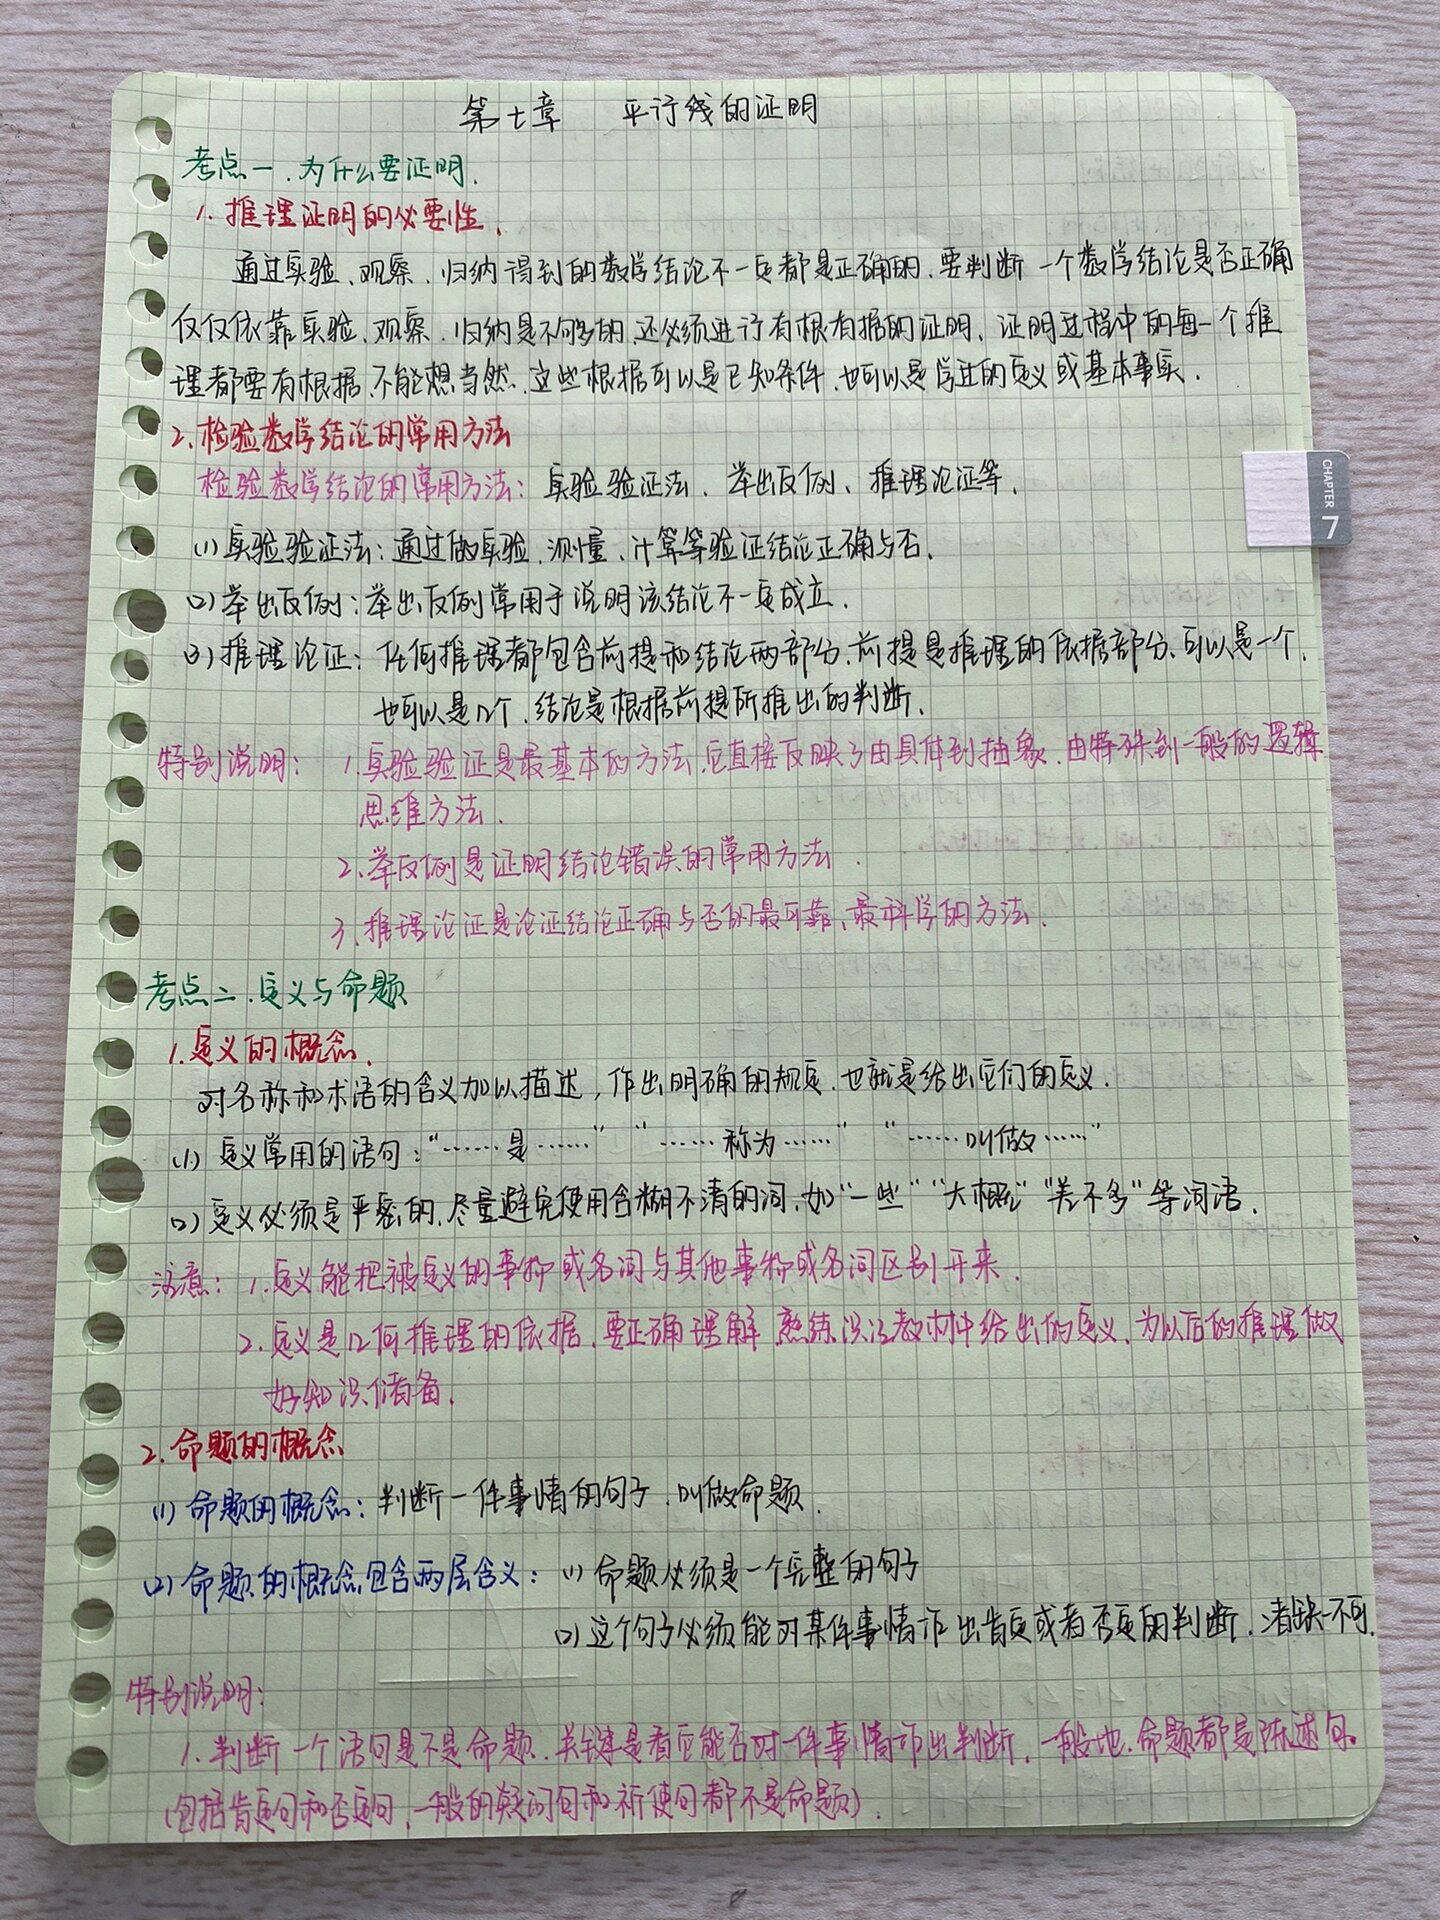 第七章 平行线的证明
考点一、为什么要证明.
1. 推理证明的必要性.
通过实验、观察、归纳得到的数学结论不一定都是正确的.要判断一个数学结论是否正确
仅仅依靠实验、观察、归纳是不够的,还必须进行有根有据的证明、证明过程中的每一个推
理都要有根据,不能想当然.这些根据可以是已知条件、也可以是学过的定义或基本事实.
CHAPTER 7
2. 检验数学结论的常用方法
检验数学结论的常用方法:实验验证法、举出反例、推理论证等.
(1)实验验证法:通过做实验、测量、计算等验证结论正确与否.
(2)举出反例:举出反例常用于说明该结论不一定成立.
(3)推理论证:任何推理都包含前提和结论两部分.前提是推理的依据部分、可以是一个.
也可以是几个.结论是根据前提所推出的判断.
特别说明: 1.实验验证是最基本的方法,它直接反映了由具体到抽象、由特殊到一般的逻辑
思维方法.
2.举反例是证明结论错误的常用方法.
3.推理论证是论证结论正确与否的最可靠、最科学的方法.
考点二、定义与命题
1.定义的概念.
对名称和术语的含义加以描述,作出明确的规定.也就是给出它们的定义.
(1)定义常用的语句:“……是……” “……称为……” “……叫做……”
(2)定义必须是严密的.尽量避免使用含糊不清的词.如“一些”“大概”“差不多”等词语.
注意: 1.定义能把被定义的事物或名词与其他事物或名词区别开来.
2.定义是几何推理的依据.要正确理解 熟练 教材中给出的定义、为以后的推理做
好知识储备.
2.命题的概念
(1)命题的概念:判断一件事情的句子.叫做命题.
(2)命题的概念包含两层含义:(1)命题必须是一个完整的句子
(2)这个句子必须能对某件事情作出肯定或者否定的判断. 者缺一不可.
特别说明:
1.判断一个语句是不是命题、关键是看它能否对一件事情作出判断.一般地.命题都是陈述句。
(包括肯定句和否定句,一般的疑问句和祈使句都不是命题).